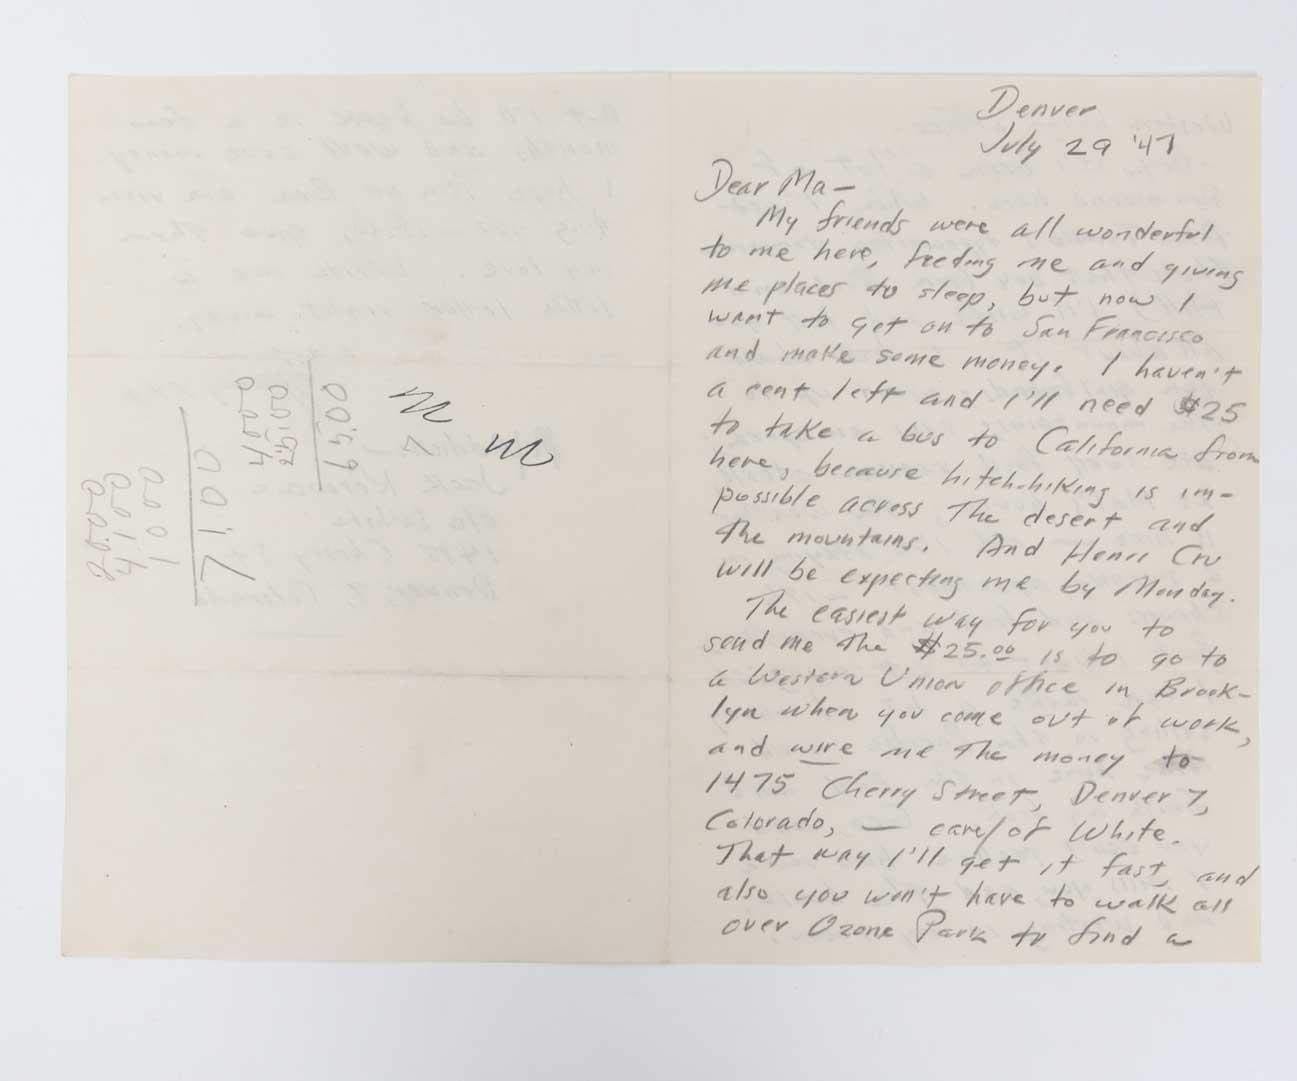 Denver
July 29 '47
Dear Ma —
My friends were all wonderful
to me here, feeding me and giving
me places to sleep, but now I
want to get on to San Francisco
and make some money. I haven't
a cent left and I'll need $25
to take a bus to California from
here, because hitch-hiking is im-
possible across the desert and
the mountains. And Henri Cru
will be expecting me by Monday.
The easiest way for you to
send me the $25.00 is to go to
a Western Union office in Brook-
lyn when you come out of work,
and wire me the money to
1475 Cherry Street, Denver 7,
Colorado, — care/of White.
That way I'll get it fast, and
also you won't have to walk all
over Ozone Park to find a
20.00
41.00
10.00
71.00
40.00
25.00
65.00